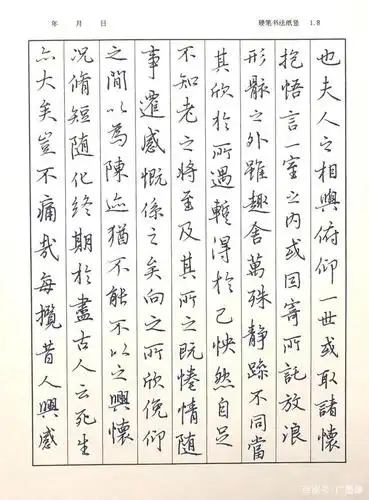 年 月 日 硬笔书法纸垫 1.8
也夫人之相與俯仰一世或取諸懷
抱悟言一室之內或因寄所託放浪
形骸之外雖趣舍萬殊靜躁不同當
其欣於所遇蹔得於己怏然自足
不知老之將至及其所之既惓情隨
事遷感慨係之矣向之所欣俛仰
之間以為陳迹猶不能不以之興懷
況脩短隨化終期於盡古人云死生
亦大矣豈不痛哉每攬昔人興感